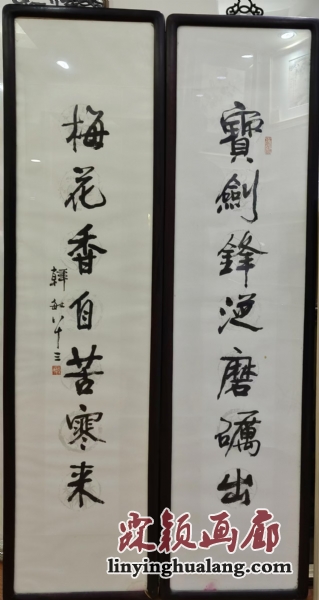 寶劍鋒從磨礪出
梅花香自苦寒来
韓敏八十三
霖颖画廊
linyinghualang.com